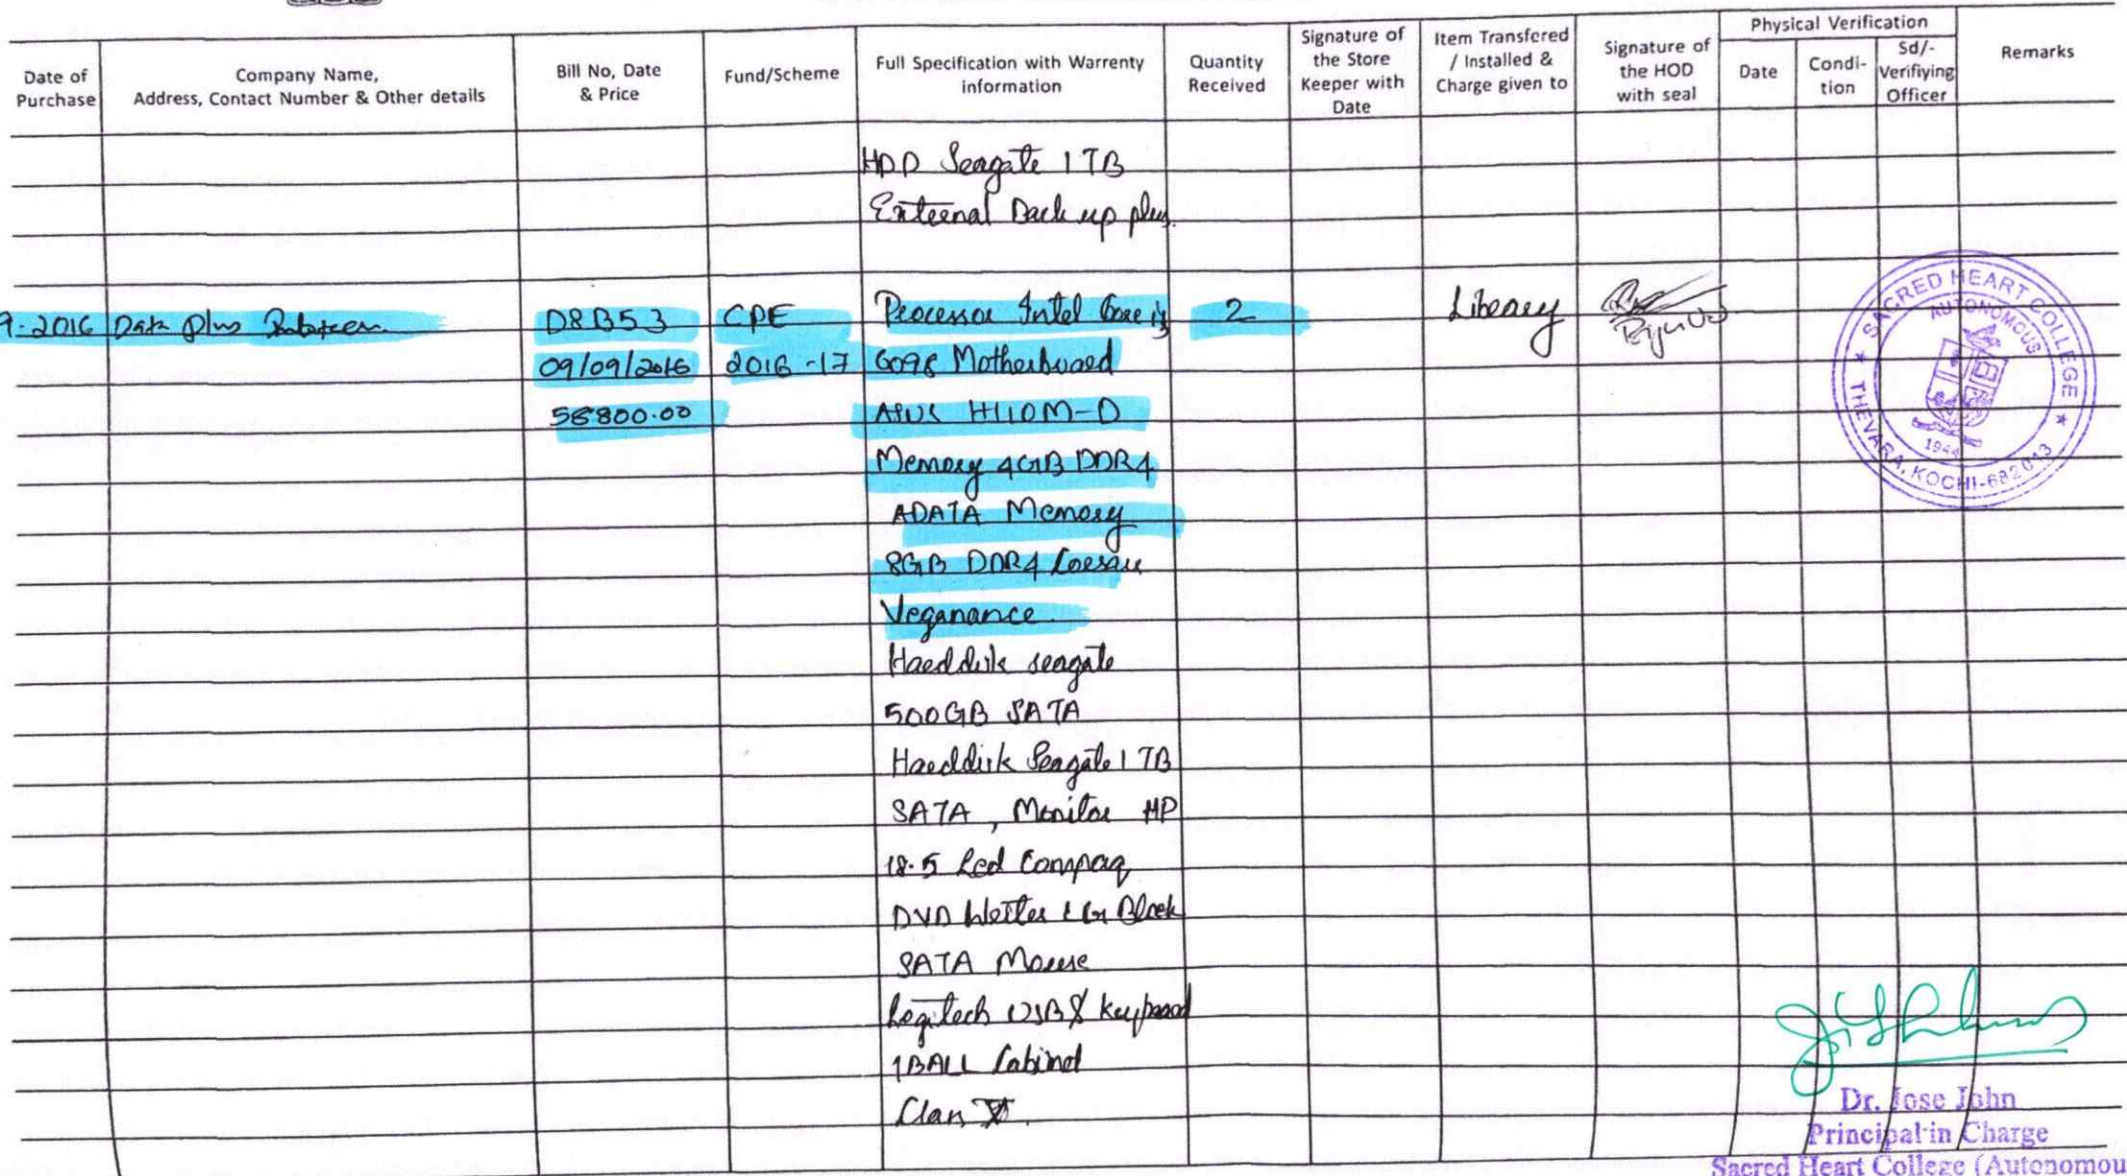 Date of Purchase
Company Name,
Address, Contact Number & Other details
Bill No, Date
& Price
Fund/Scheme
Full Specification with Warrenty
information
Quantity
Received
Signature of
the Store
Keeper with
Date
Item Transfered
/ Installed &
Charge given to
Signature of
the HOD
with seal
Physical Verification
Date
Condi-
tion
Sd/-
Verifiying
Officer
Remarks
HDD Seagate 1TB
External Back up plus
9-2016 Data plus D8B53 CPE Processor Intel Core i3 2 Library
09/09/2016 2016-17 6098 Motherboard
58800.00 ASUS H110M-D
Memory 4GB DDR4
ADATA Memory
8GB DDR4 Corsair
Veganance
Harddisk seagate
500GB SATA
Harddisk Seagate 1TB
SATA, Monitor HP
18.5 Led Compaq
DVD Writer LG Black
SATA Mouse
Logitech USB & keyboard
1BALL Cabinet
SACRED HEART COLLEGE
AUTONOMOUS
1944
THEVARA, KOCHI-682013
Dr. Jose John
Principal in Charge
Sacred Heart College (Autonomou